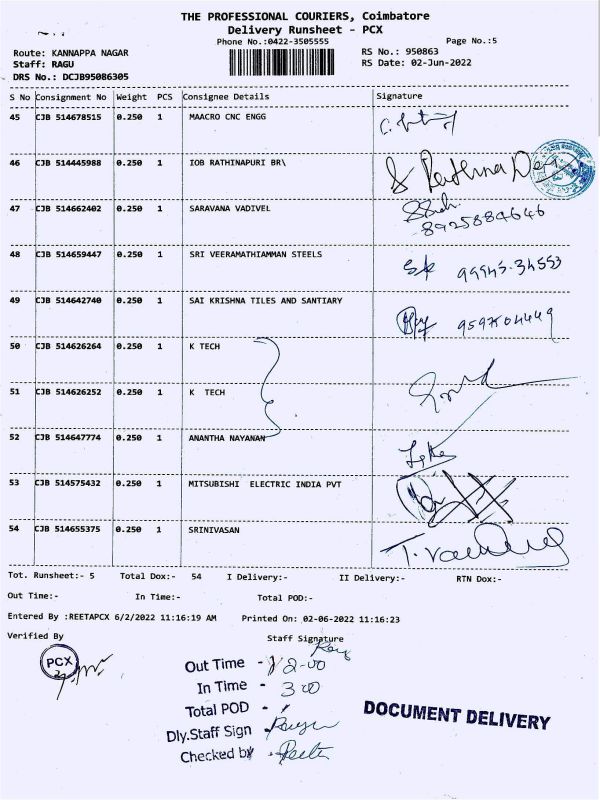 THE PROFESSIONAL COURIERS, Coimbatore
Delivery Runsheet - PCX
Phone No.:0422-3505555 Page No.:5
Route: KANNAPPA NAGAR RS No.: 950863
Staff: RAGU RS Date: 02-Jun-2022
DRS No.: DCJB95086305
S No Consignment No Weight PCS Consignee Details Signature
45 CJB 514678515 0.250 1 MAACRO CNC ENGG
46 CJB 514445988 0.250 1 IOB RATHINAPURI BR\
47 CJB 514662402 0.250 1 SARAVANA VADIVEL
8925884646
48 CJB 514659447 0.250 1 SRI VEERAMATHIAMMAN STEELS 99945-34553
49 CJB 514642740 0.250 1 SAI KRISHNA TILES AND SANTIARY
50 CJB 514626264 0.250 1 K TECH
51 CJB 514626252 0.250 1 K TECH
52 CJB 514647774 0.250 1 ANANTHA NAYANAN
53 CJB 514575432 0.250 1 MITSUBISHI ELECTRIC INDIA PVT
54 CJB 514655375 0.250 1 SRINIVASAN
Tot. Runsheet:- 5 Total Dox:- 54 I Delivery:- II Delivery:- RTN Dox:-
Out Time:- In Time:- Total POD:-
Entered By :REETAPCX 6/2/2022 11:16:19 AM Printed On: 02-06-2022 11:16:23
Verified By Staff Signature
PCX
Out Time - 12-00
In Time - 3 00
Total POD -
Dly.Staff Sign -
Checked by -
DOCUMENT DELIVERY